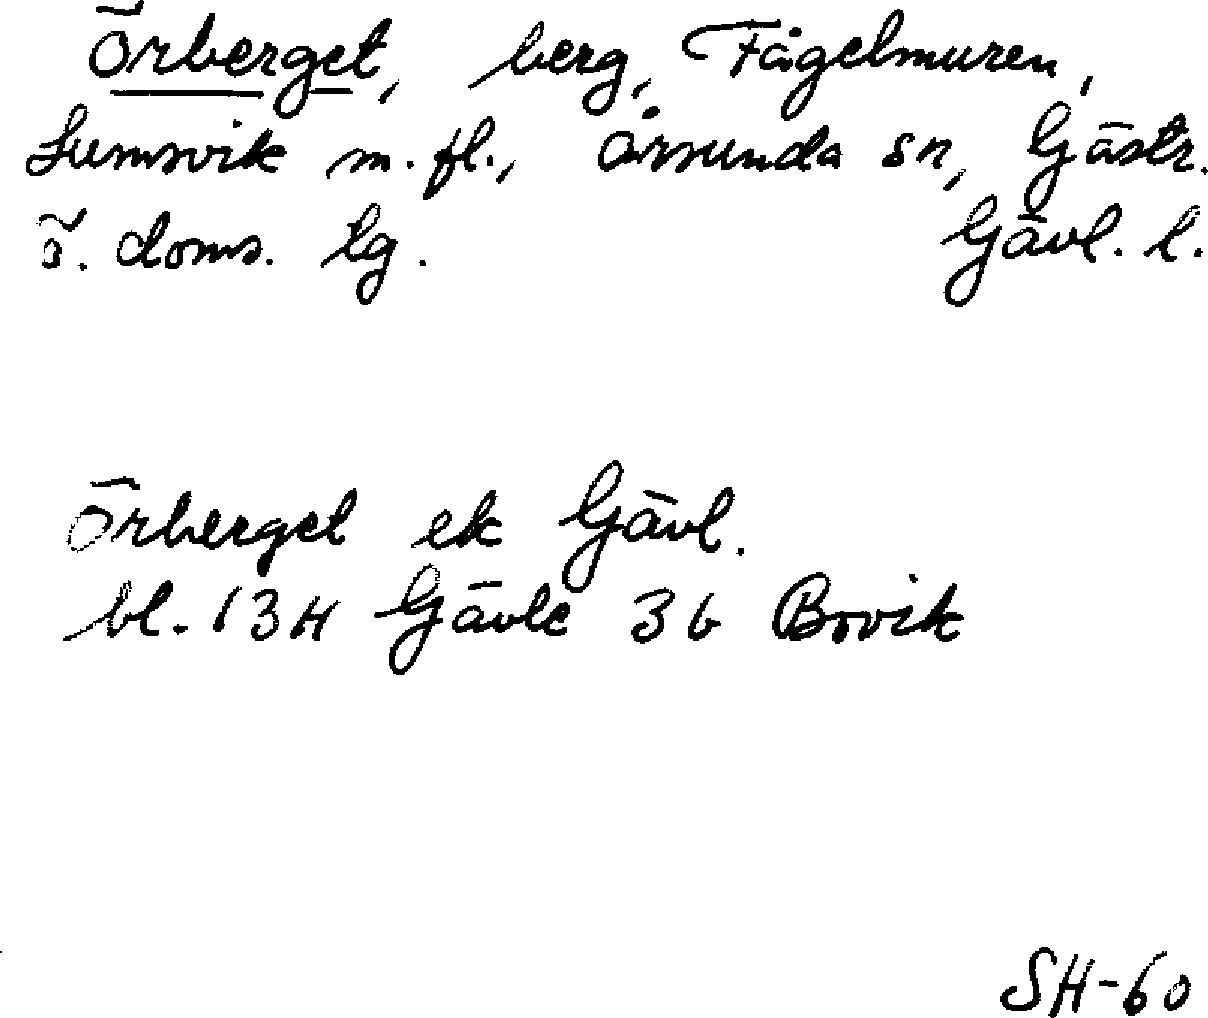 Örberget, berg, Fågelmuren,
Lumsvik m.fl., Årsunda sn, Gästr.
ö. doms. lg. Gävl. l.
Örberget ek Gävl.
bl. 13H Gävle 3b Brovik
SH-60